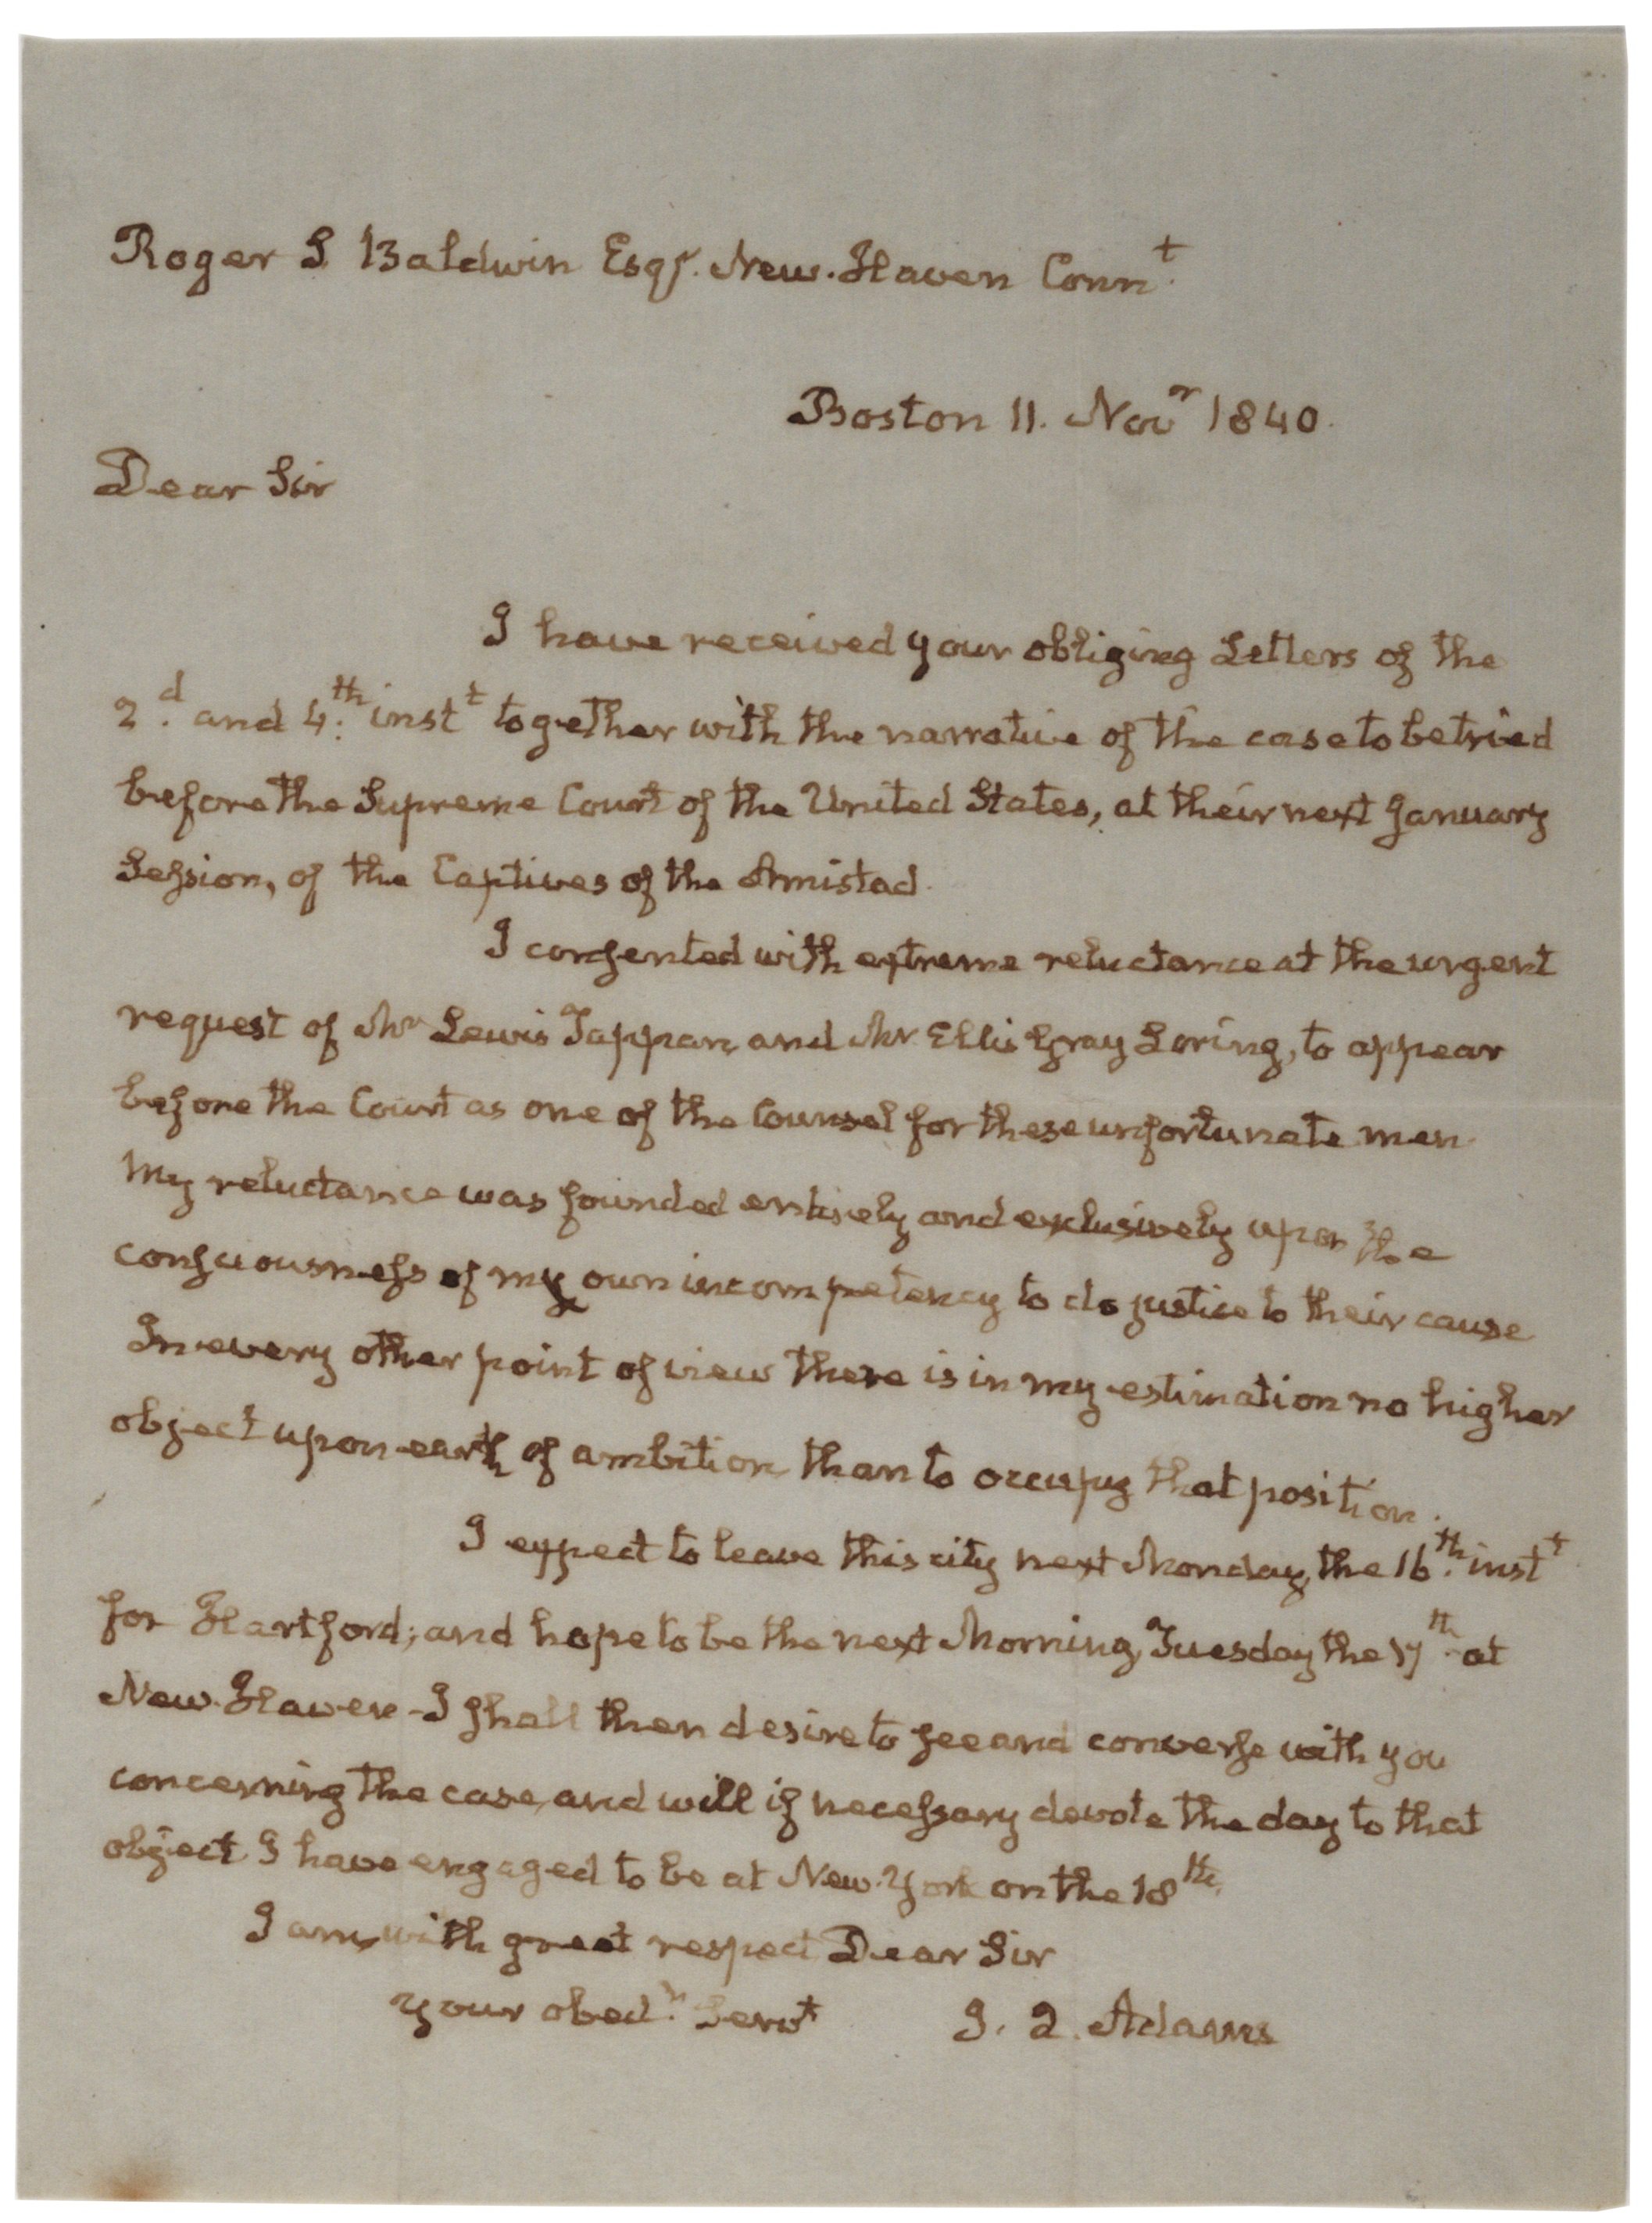 Roger S. Baldwin Esqr. New-Haven Connt.
Boston 11. Novr 1840.
Dear Sir
I have received your obliging Letters of the
2d. and 4th. instt together with the narrative of the case to be tried
before the Supreme Court of the United States, at their next January
Session, of the Captives of the Amistad.
I consented with extreme reluctance at the urgent
request of Mr Lewis Tappan, and Mr Ellis Gray Loring, to appear
before the Court as one of the Counsel for these unfortunate men.
My reluctance was founded entirely and exclusively upon the
consciousness of my own incompetency to do justice to their cause
In every other point of view there is in my estimation no higher
object upon earth of ambition than to occupy that position.
I expect to leave this city next Monday, the 16th. instt
for Hartford; and hope to be the next Morning, Tuesday the 17th. at
New-Haven - I shall then desire to see and converse with you
concerning the case, and will if necessary devote the day to that
object. I have engaged to be at New-York on the 18th.
I am, with great respect Dear Sir
your obedt. Servt J. Q. Adams